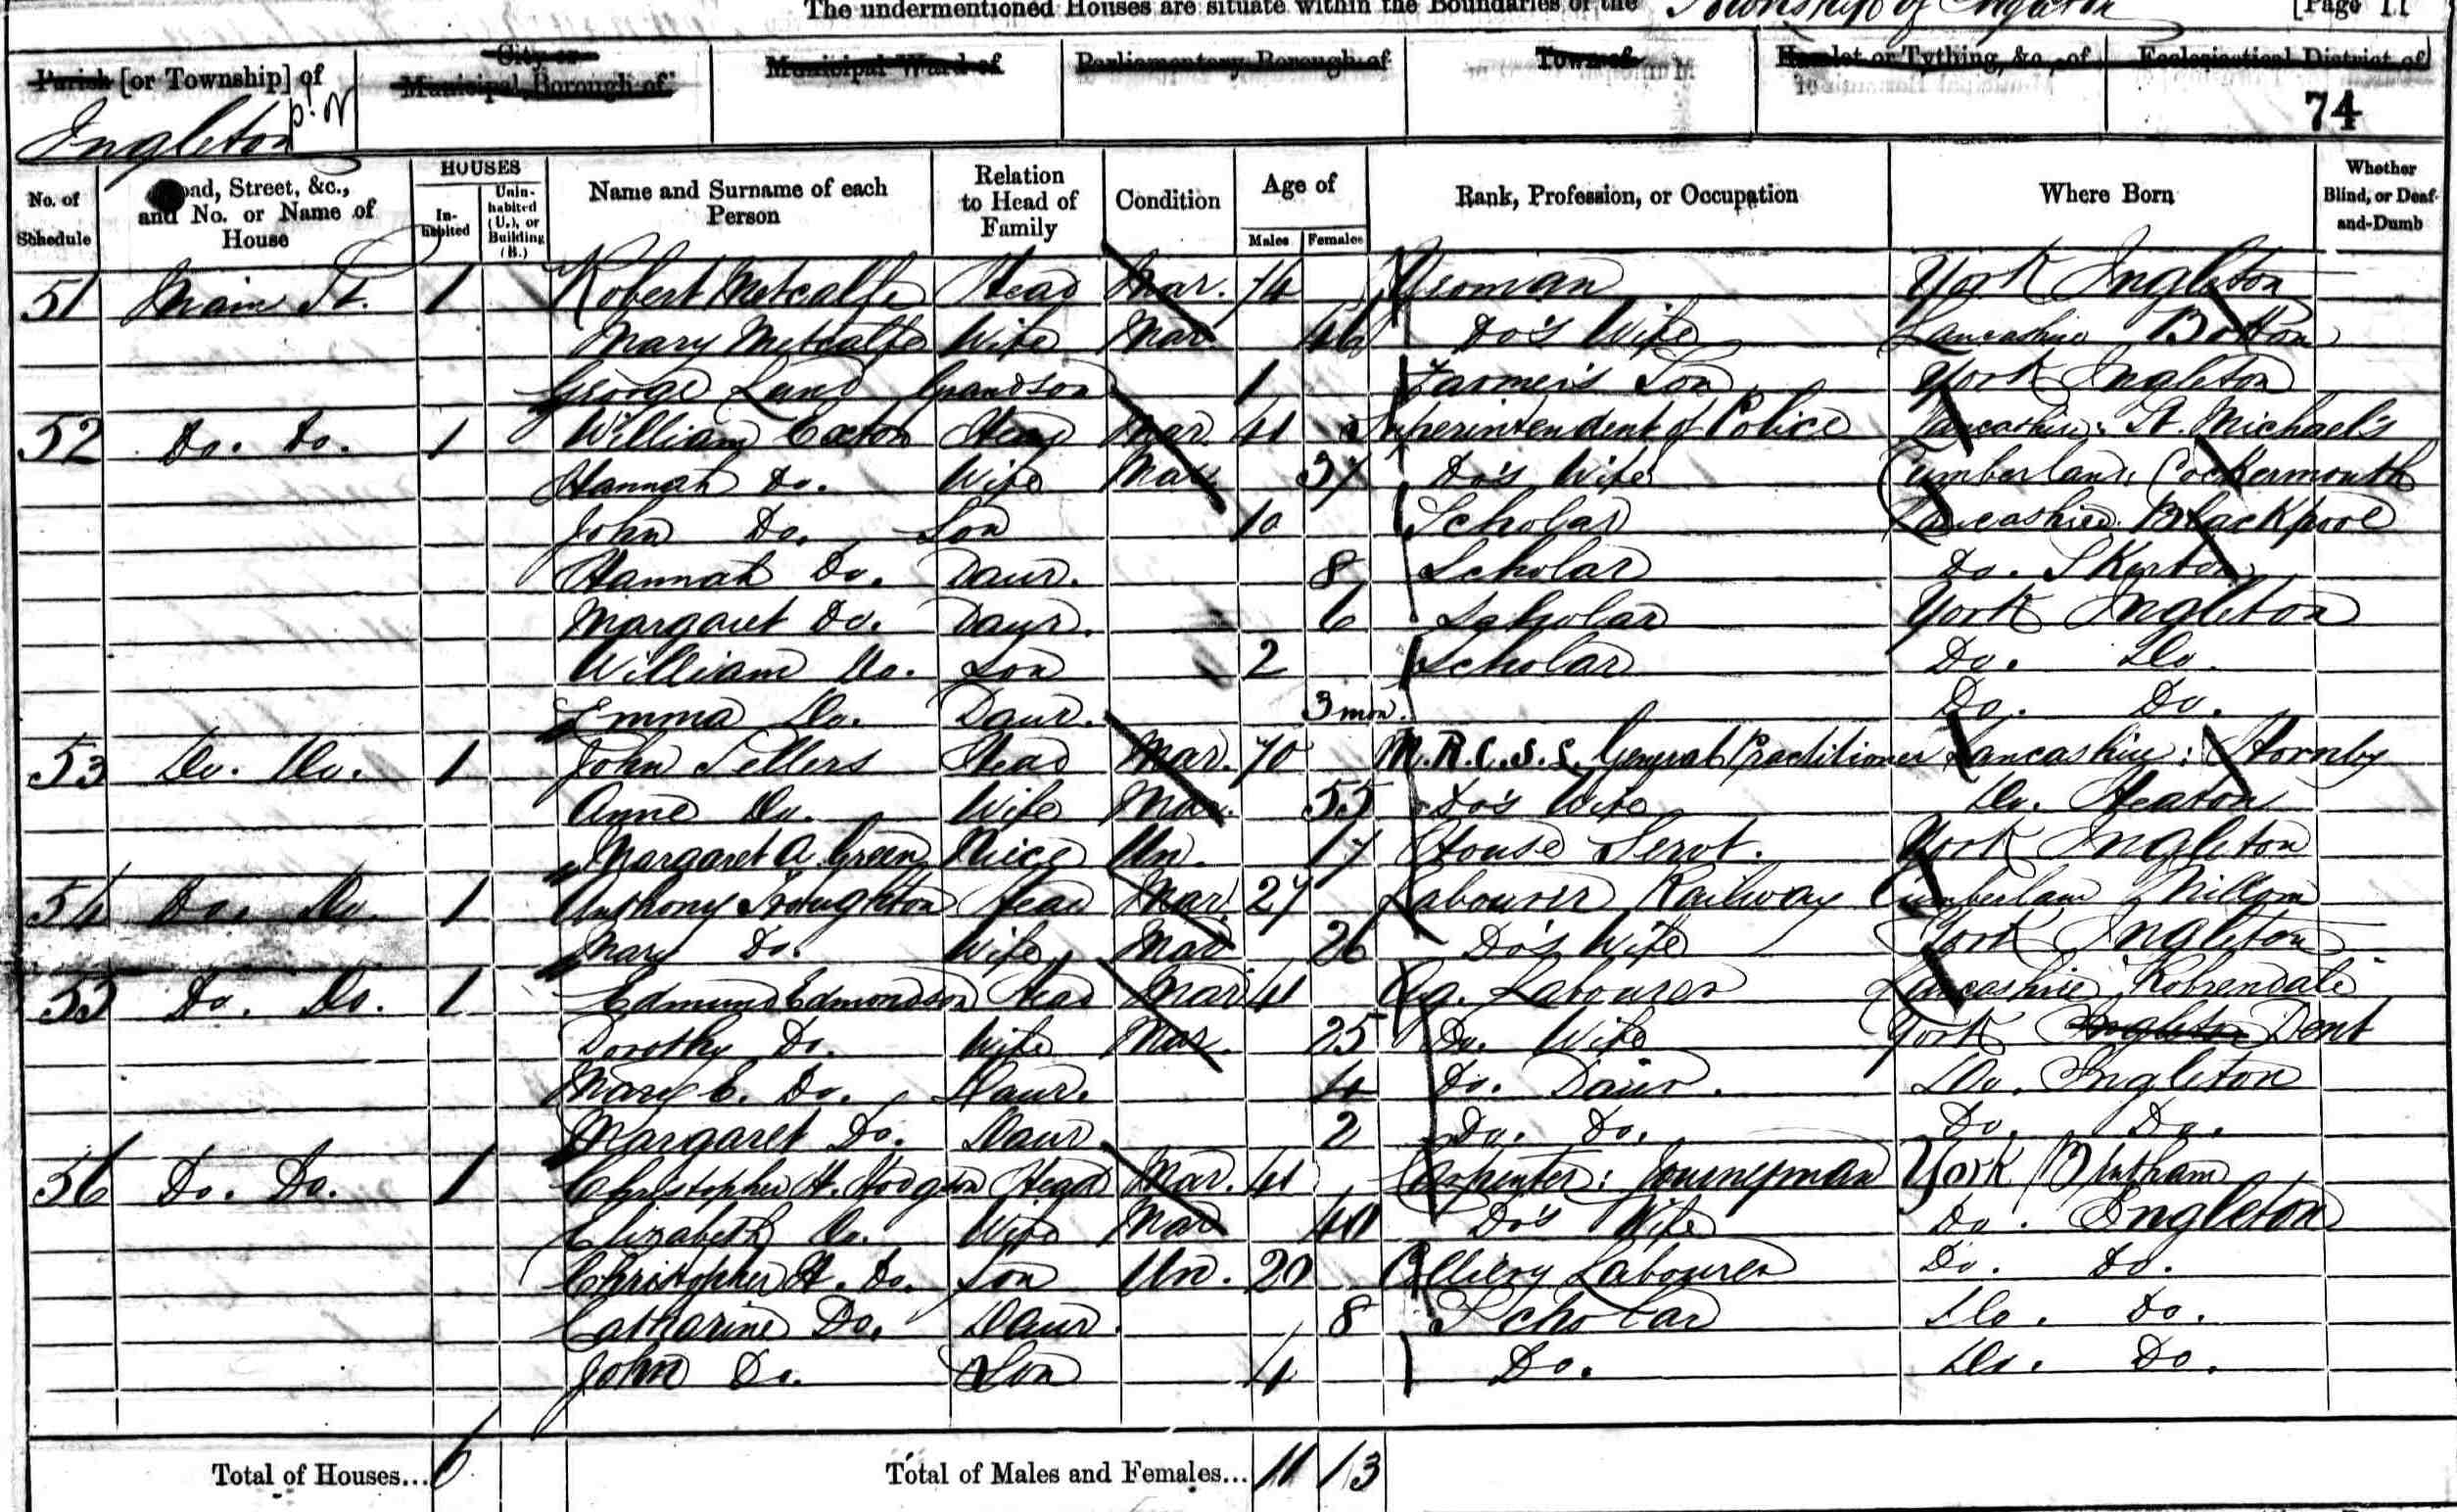 The undermentioned Houses are situate within the Boundaries of the Township of Ingleton [Page 11
Parish [or Township] of
City or Municipal Borough of
Municipal Ward of
Parliamentary Borough of
Town of
Hamlet or Tything, &c., of
Ecclesiastical District of
Ingleton
74
No. of Schedule
Road, Street, &c., and No. or Name of House
HOUSES
In-habited
Unin-habited (U.), or Building (B.)
Name and Surname of each Person
Relation to Head of Family
Condition
Age of
Males
Females
Rank, Profession, or Occupation
Where Born
Whether Blind, or Deaf-and-Dumb
51 Main St. 1 Robert Metcalfe Head Mar. 74 Yeoman York Ingleton
Mary Metcalfe Wife Mar. 46 Do's Wife Lancashire
George Lund Grandson 1 Farmer's Son York Ingleton
52 Do. Do. 1 William Exton Head Mar. 41 Superintendent of Police Lancashire: St. Michael's
Hannah Do. Wife Mar. 37 Do's Wife Cumberland, Cockermouth
John Do. Son 10 Scholar Lancashire Blackpool
Hannah Do. Daur. 8 Scholar Do. Skerton
Margaret Do. Daur. 6 Scholar York Ingleton
William Do. Son 2 Scholar Do. Do.
Emma Do. Daur. 3 mon. Do. Do.
53 Do. Do. 1 John Sellers Head Mar. 70 M.R.C.S.L. General Practitioner Lancashire: Hornby
Anne Do. Wife Mar. 55 Do's Wife Do. Heaton
Margaret A. Green Niece Un. 17 House Servt. York Ingleton
54 Do. Do. 1 Anthony Troughton Head Mar. 27 Labourer Railway Cumberland Millom
Mary Do. Wife Mar 26 Do's Wife York Ingleton
55 Do. Do. 1 Edmund Edmondson Head Mar 41 Ag. Labourer Lancashire
Dorothy Do. Wife Mar. 25 Do. Wife York Ingleton Dent
Mary E. Do. Daur. 4 Do. Daur. Do. Ingleton
Margaret Do. Daur. 2 Do. Do. Do. Do.
56 Do. Do. 1 Christopher H. Hodgson Head Mar. 41 Carpenter: Journeyman York Bentham
Elizabeth Do. Wife Mar 40 Do's Wife Do. Ingleton
Christopher H. Do. Son Un. 20 Colliery Labourer Do. Do.
Catharine Do. Daur. 8 Scholar Do. Do.
John Do. Son 4 Do. Do. Do.
Total of Houses... 6 Total of Males and Females... 11 13